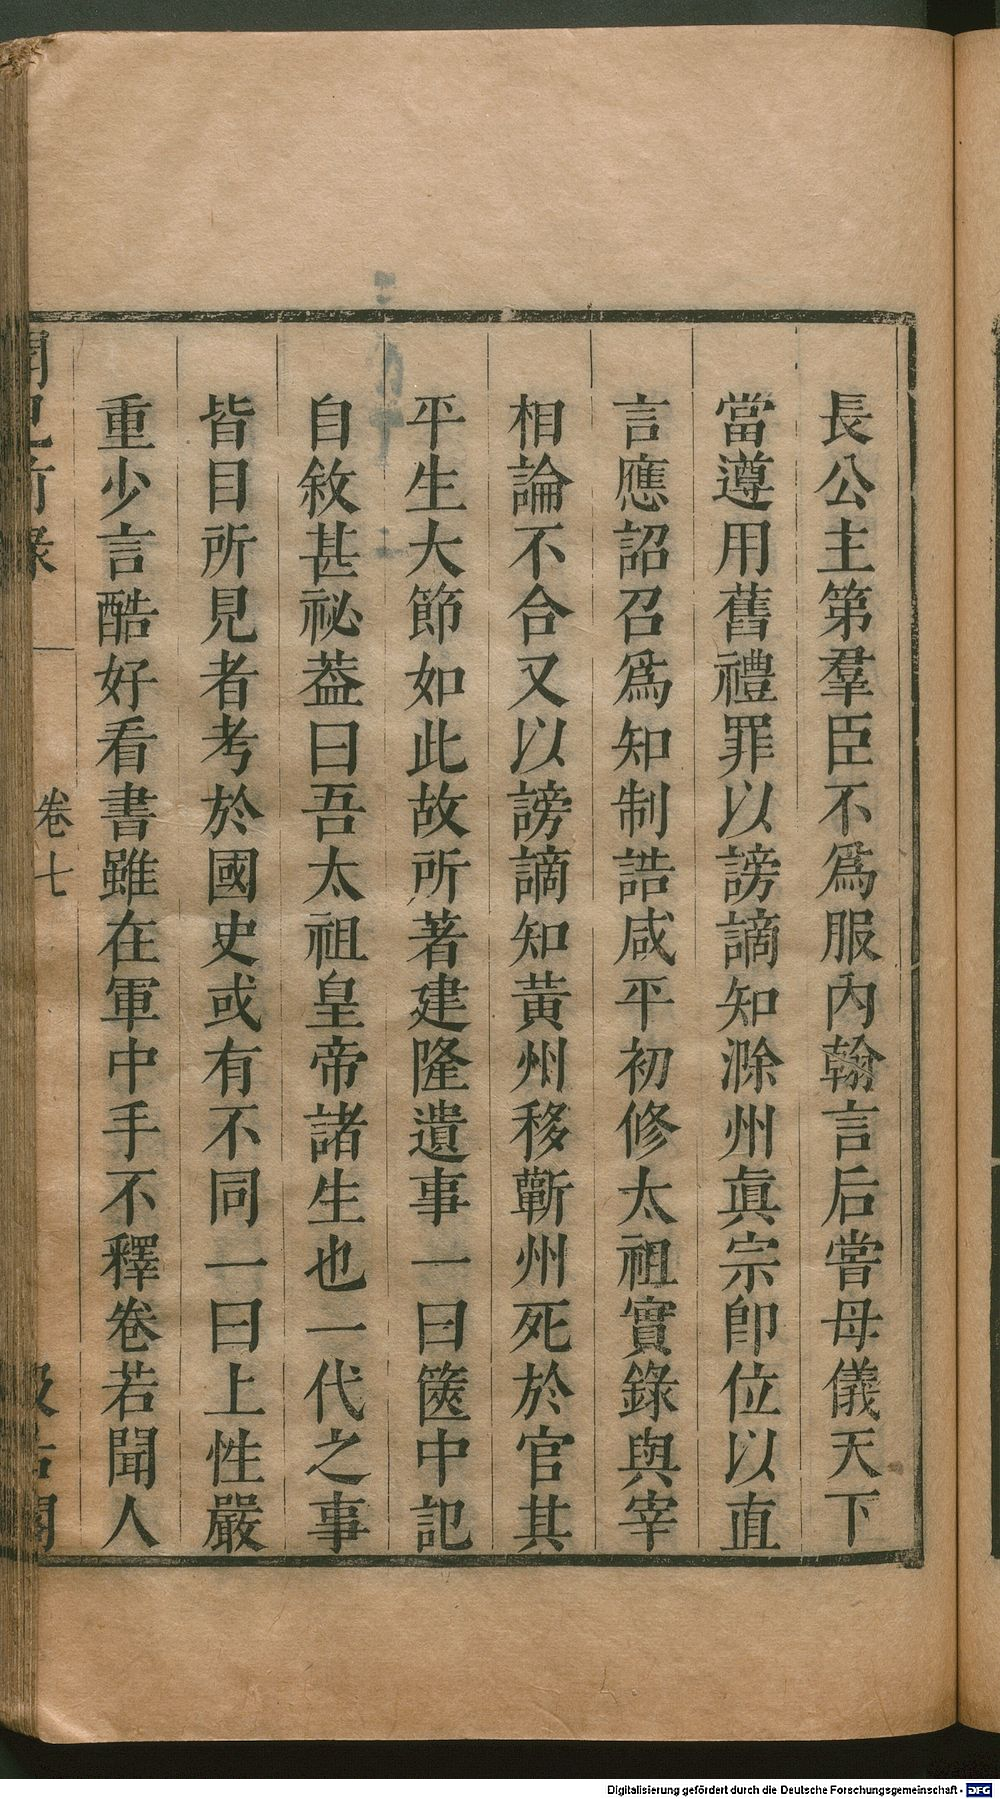 長公主第羣臣不爲服內翰言后嘗母儀天下
當遵用舊禮罪以謗謫知滁州眞宗卽位以直
言應詔召爲知制誥咸平初修太祖實錄與宰
相論不合又以謗謫知黃州移蘄州死於官其
平生大節如此故所著建隆遺事一曰篋中記
自敘甚祕葢曰吾太祖皇帝諸生也一代之事
皆目所見者考於國史或有不同一曰上性嚴
重少言酷好看書雖在軍中手不釋卷若聞人
卷七
Digitalisierung gefördert durch die Deutsche Forschungsgemeinschaft - DFG